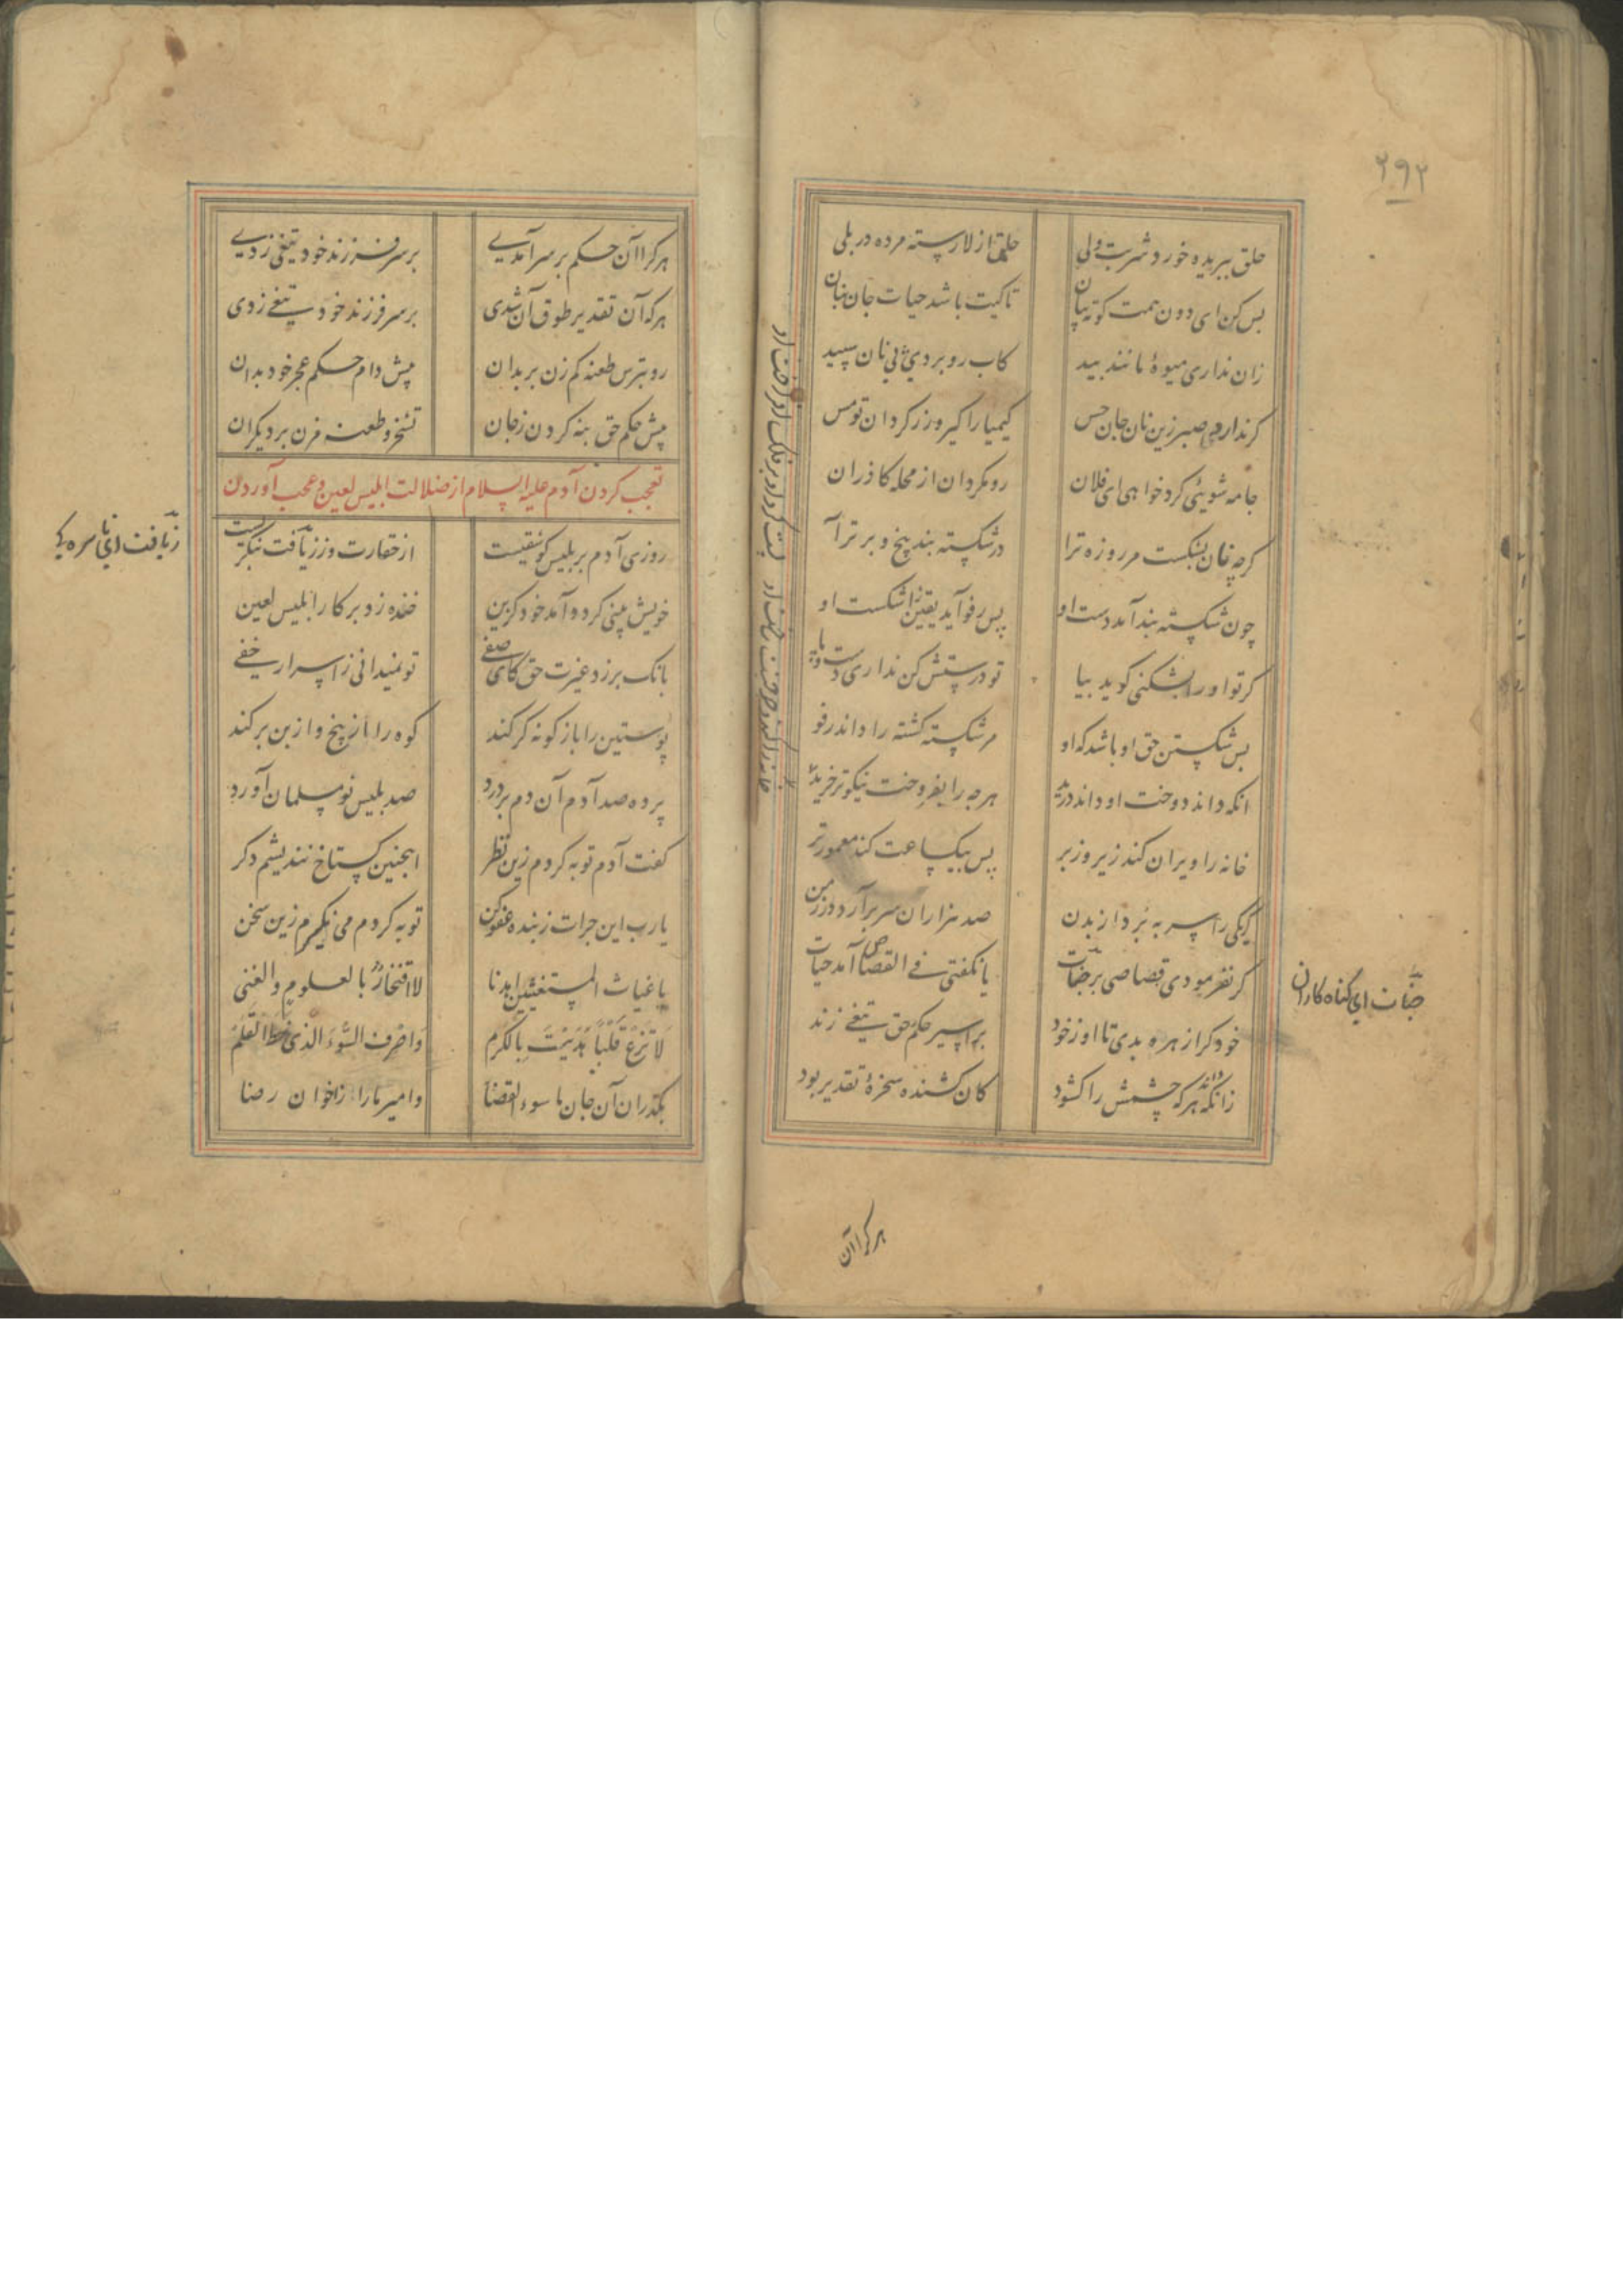 ۲۹۲
حلق ببریده خورد شربت ولی حلق از لا رسته مرده در بلی
بس کن ای دون همت کوته بنان تا کیت باشد حیات جان بنان
زان نداری میوهٔ مانند بید کاب رو بردی پی نان سپید
کر ندارد صبر زین نان جان حس کیمیا را کیر و زر کردان تو مس
جامه شویئی کرد خواهی ای فلان رو مکردان از محله کاذران
کرچه نان بشکست مر روزه ترا در شکسته بند پیچ و برتر آ
چون شکسته بند آمد دست او پس رفو آید یقین اشکست او
کر تو او را بشکنی کوید بیا تو درستش کن نداری دست و پا
بس شکستن حق او باشد که او مر شکسته کشته را داند رفو
انکه داند دوخت او داند درید هر چه را بفروخت نیکوتر خرید
خانه را ویران کند زیر و زبر پس بیکساعت کند معمورتر
کر یکی را سر به برد از بدن صد هزاران سر برآرد در زمن
کر نفرمودی قصاصی بر جنات یا نکفتی فی القصاص آمد حیات
جنات ای کناه کاران
خود کرا زهره بدی تا او ز خود بر اسیر حکم حق تیغی زند
زانکه داند هر که چشمش را کشود کان کشنده سخرهٔ تقدیر بود
هر کرا آن
هر کرا آن حکم بر سر آمدی بر سر فرزند خود تیغی زدی
هر که آن تقدیر طوق آن شدی بر سر فرزند خود تیغی زدی
رو بترس طعنه کم زن بر بدان پیش دام حکم عجز خود بدان
پیش حکم حق بنه کردن زجان تسخر و طعنه مزن بر دیکران
تعجب کردن آدم علیه السلام از ضلالت ابلیس لعین و عجب آوردن
روزی آدم بر بلیس کو شقیست از حقارت وز زیافت بنکریست
زیافت ای ناسره یی
خویش بینی کرد و آمد خود کزین خنده زد بر کار ابلیس لعین
بانک بر زد غیرت حق کای صفی تو نمیدانی ز اسرار خفی
پوستین را بازکونه کر کند کوه را از بیخ و از بن بر کند
پرده صد آدم آن دم بر درد صد بلیس نو مسلمان آورد
کفت آدم توبه کردم زین نظر اینچنین کستاخ نندیشم دکر
یارب این جرات ز بنده عفو کن توبه کردم می نکیرم زین سخن
یا غیاث المستغیثین اهدنا لا افتخارٌ بالعلوم والغنی
لا تزغ قلباً هدیت بالکرم واصرف السوء الذی خط القلم
بکذران آن جان ما سوء القضا وا مبر ما را ز اخوان رضا